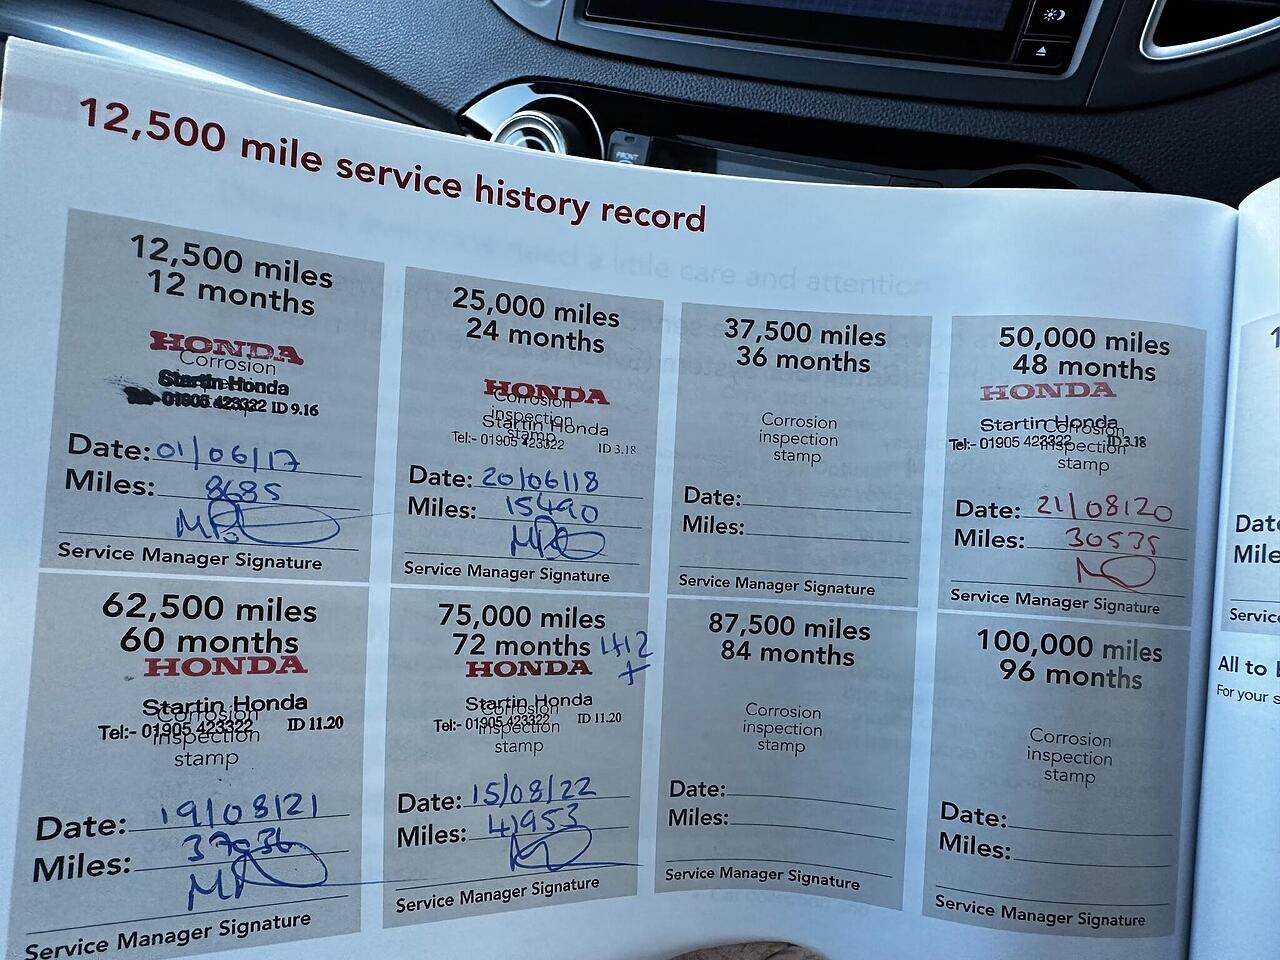 FRONT
12,500 mile service history record
12,500 miles
12 months
HONDA
Corrosion
Startin Honda
01905 423322 ID 9.16
Date: 01/06/17
Miles: 8685
Service Manager Signature
25,000 miles
24 months
HONDA
Corrosion
inspection
Startin Honda
stamp
Tel:- 01905 423322 ID 3.18
Date: 20/06/18
Miles: 15490
Service Manager Signature
37,500 miles
36 months
Corrosion
inspection
stamp
Date:
Miles:
Service Manager Signature
50,000 miles
48 months
HONDA
Startin Honda
Corrosion
Tel:- 01905 423322 ID 3.18
inspection
stamp
Date: 21/08/20
Miles: 30535
Service Manager Signature
62,500 miles
60 months
HONDA
Startin Honda
Corrosion
Tel:- 01905 423322 ID 11.20
inspection
stamp
Date: 19/08/21
Miles: 37036
Service Manager Signature
75,000 miles
72 months
HONDA
Startin Honda
Corrosion
Tel:- 01905 423322 ID 11.20
inspection
stamp
Date: 15/08/22
Miles: 41953
Service Manager Signature
87,500 miles
84 months
Corrosion
inspection
stamp
Date:
Miles:
Service Manager Signature
100,000 miles
96 months
Corrosion
inspection
stamp
Date:
Miles:
Service Manager Signature
All to
For your